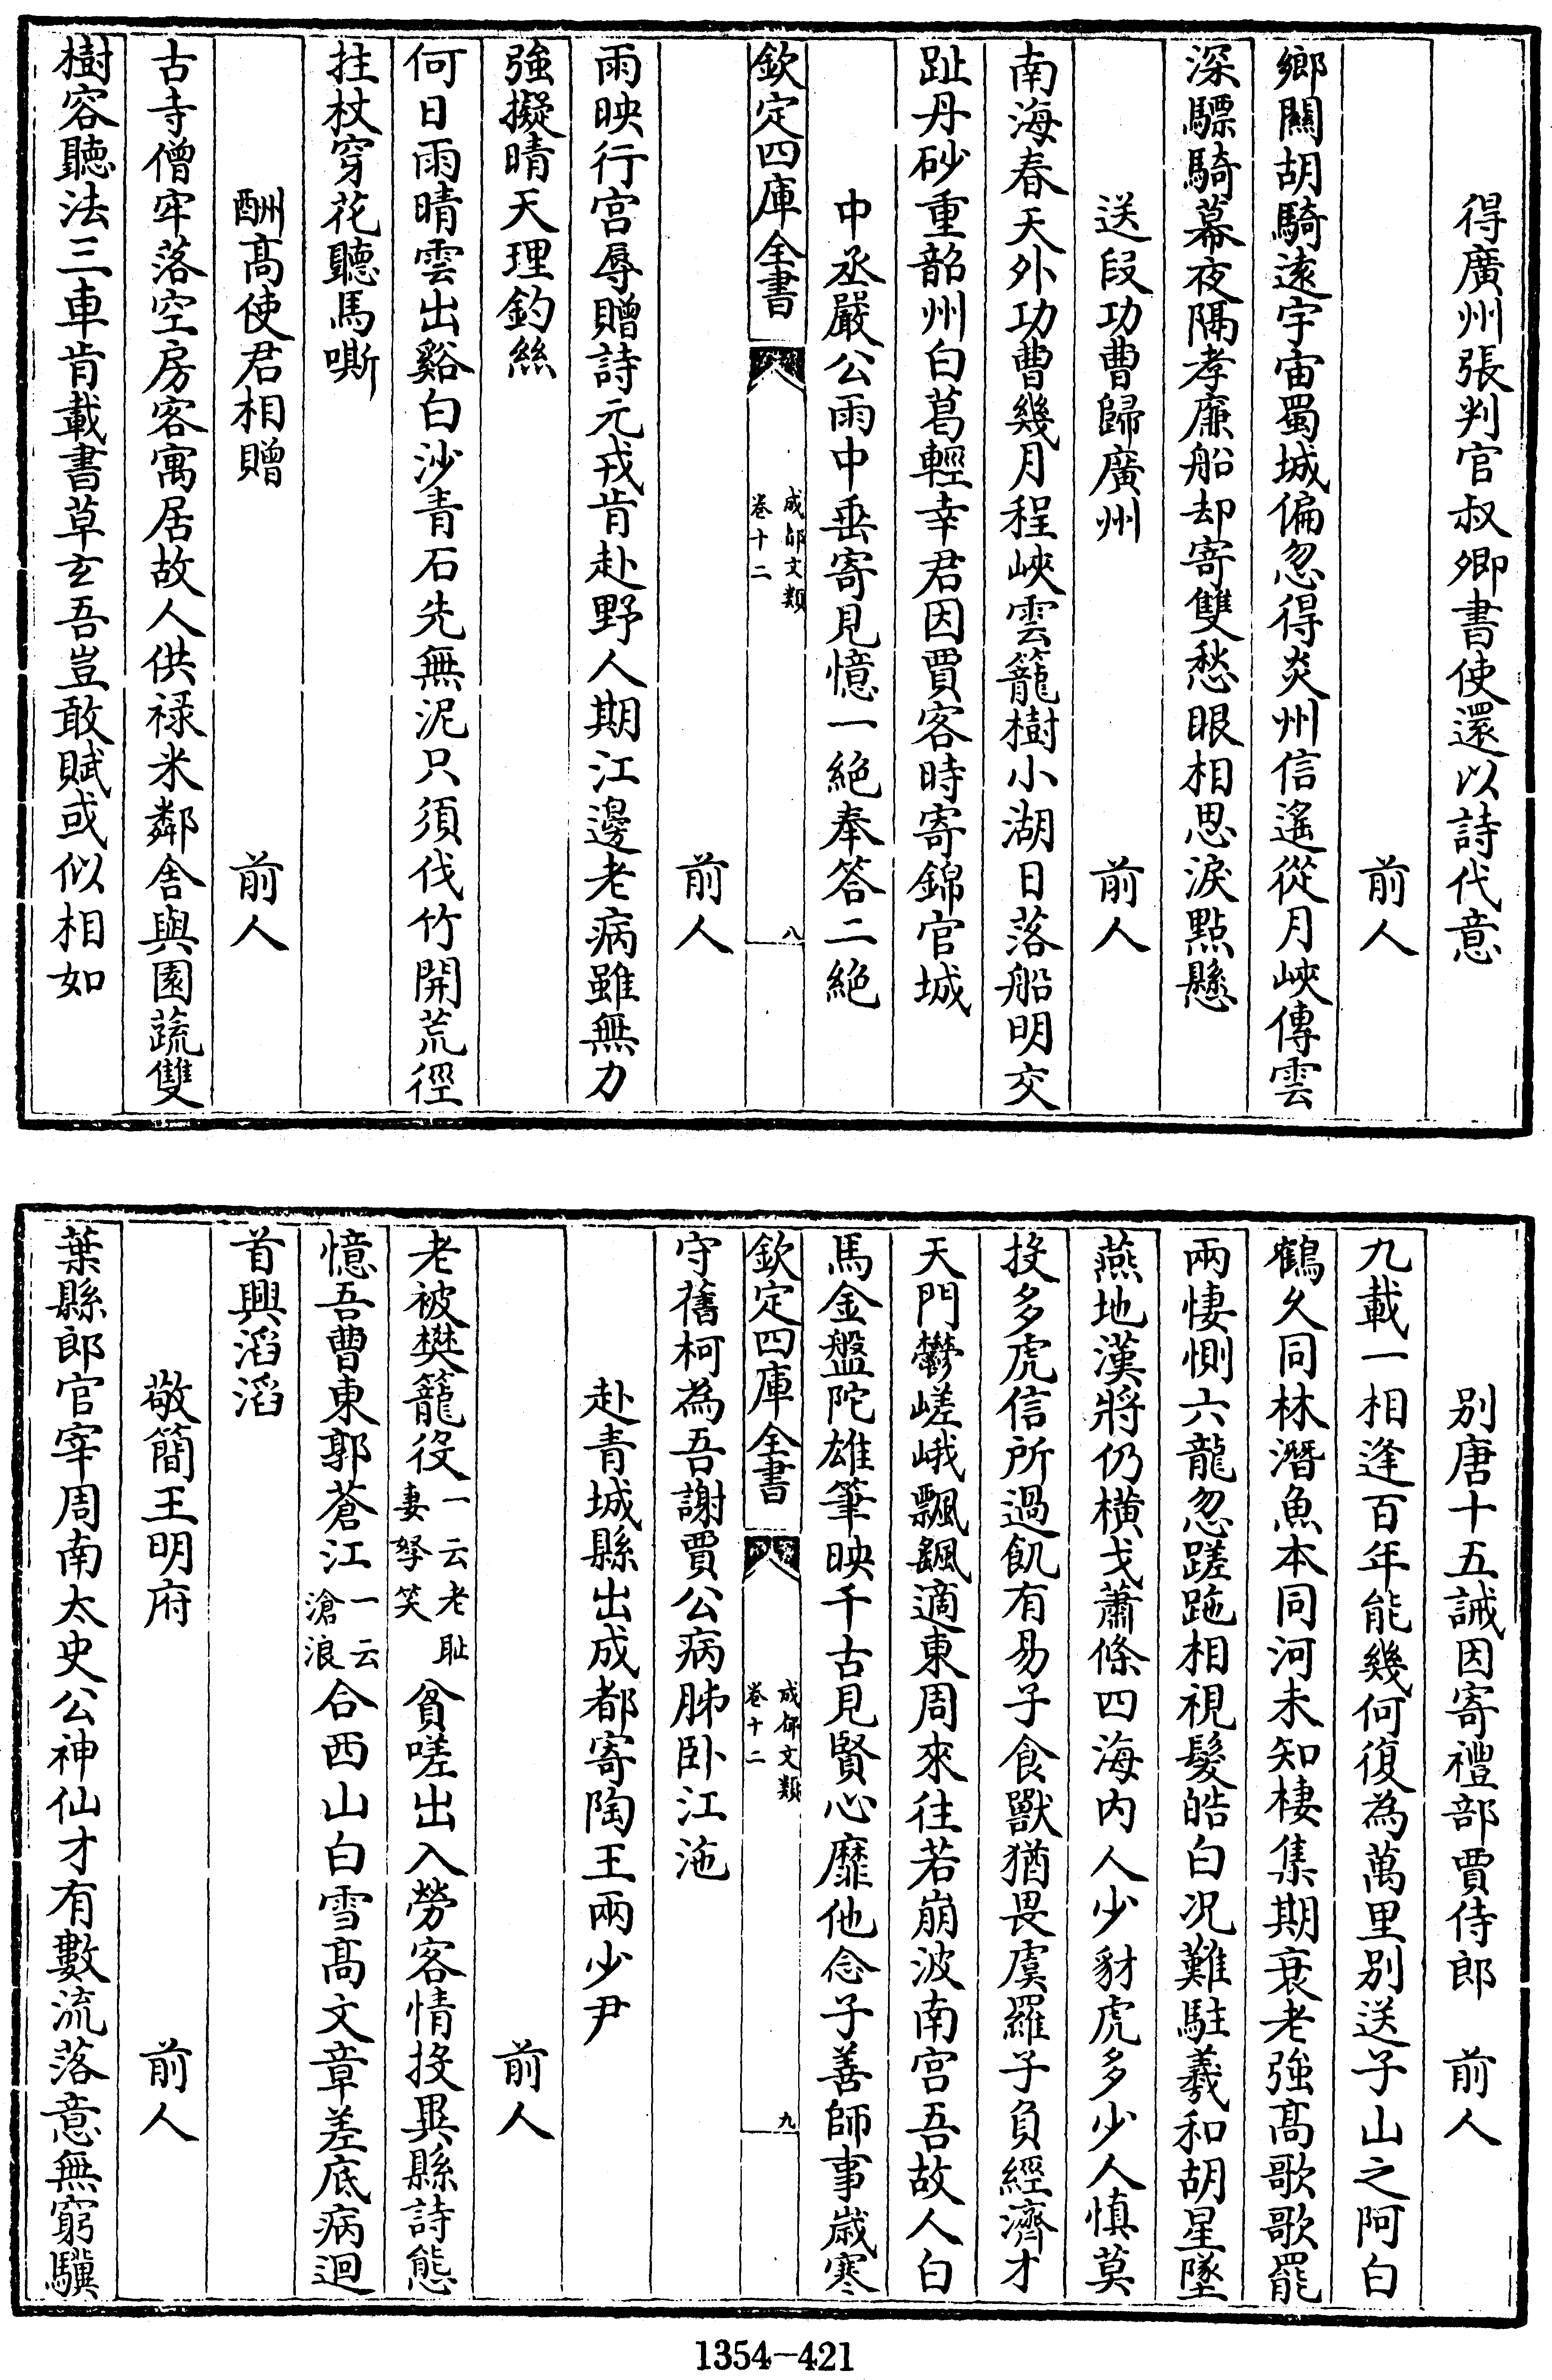 得廣州張判官叔卿書使還以詩代意
前人
鄉關胡騎逺宇宙蜀城偏忽得炎州信遙從月峽傳雲
深驃騎幕夜隔孝廉船却寄雙愁眼相思淚點懸
送段功曹歸廣州
前人
南海春天外功曹幾月程峽雲籠樹小湖日落船明交
趾丹砂重韶州白葛輕幸君因賈客時寄錦官城
中丞嚴公雨中垂寄見憶一絶奉答二絶
欽定四庫全書
成都文類
卷十二
八
前人
雨映行宫辱贈詩元戎肯赴野人期江邊老病雖無力
強擬晴天理釣絲
何日雨晴雲出谿白沙青石先無泥只須伐竹開荒徑
拄杖穿花聽馬嘶
酬髙使君相贈
前人
古寺僧牢落空房客寓居故人供禄米鄰舍與園蔬雙
樹容聽法三車肯載書草玄吾豈敢賦或似相如
别唐十五誡因寄禮部賈侍郎
前人
九載一相逢百年能幾何復為萬里别送子山之阿白
鶴久同林潛魚本同河未知棲集期衰老強髙歌歌罷
兩悽惻六龍忽蹉跎相視髮皓白况難駐羲和胡星墜
燕地漢將仍横戈蕭條四海内人少豺虎多少人慎莫
投多虎信所過飢有易子食獸猶畏虞羅子負經濟才
天門鬱嵯峨飄颻適東周來往若崩波南宫吾故人白
馬金盤陀雄筆映千古見賢心靡他念子善師事歲寒
欽定四庫全書
成都文類
卷十二
九
守舊柯為吾謝賈公病肺卧江沱
赴青城縣出成都寄陶王兩少尹
前人
老被樊籠役一云老耻妻孥笑貧嗟出入勞客情投異縣詩態
憶吾曹東郭蒼江一云滄浪合西山白雪髙文章差底病迴
首興滔滔
敬簡王明府
前人
葉縣郎官宰周南太史公神仙才有數流落意無窮驥
1354-421